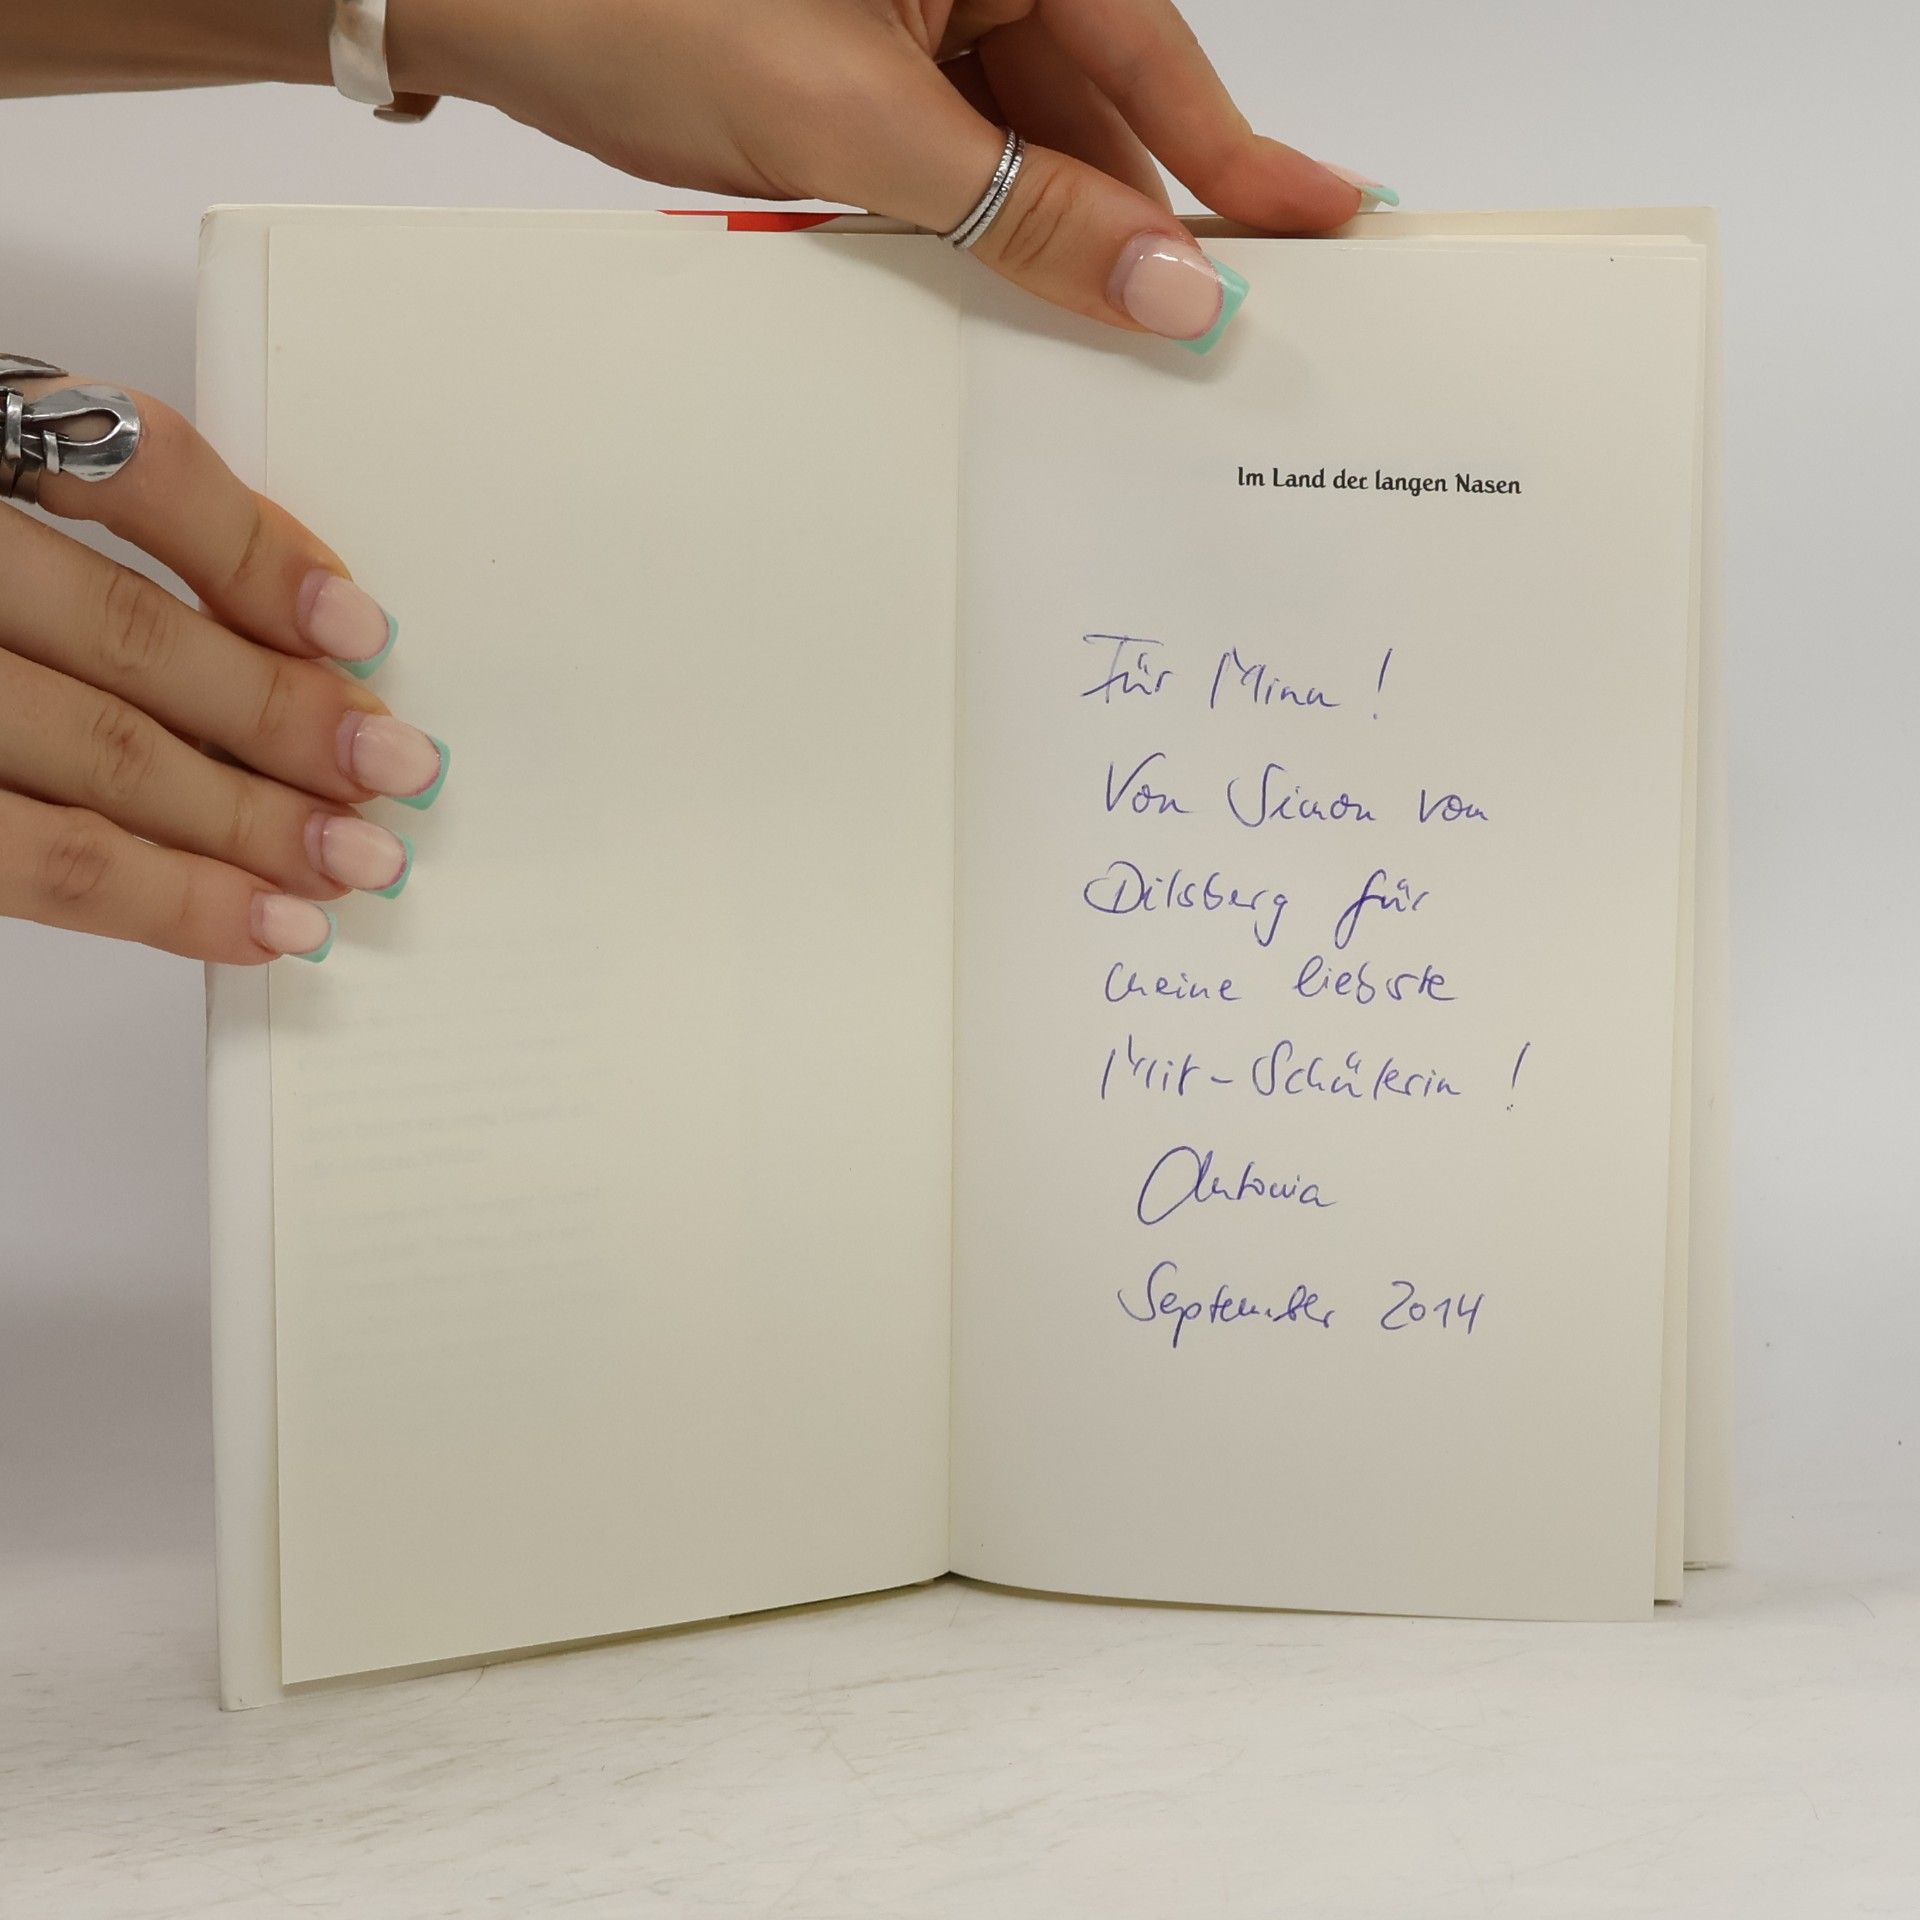 Im Land der langen Nasen
Für Mina!
Von Simon vom
Dilsberg für
meine liebste
Mit-Schülerin!
Antonia
September 2014